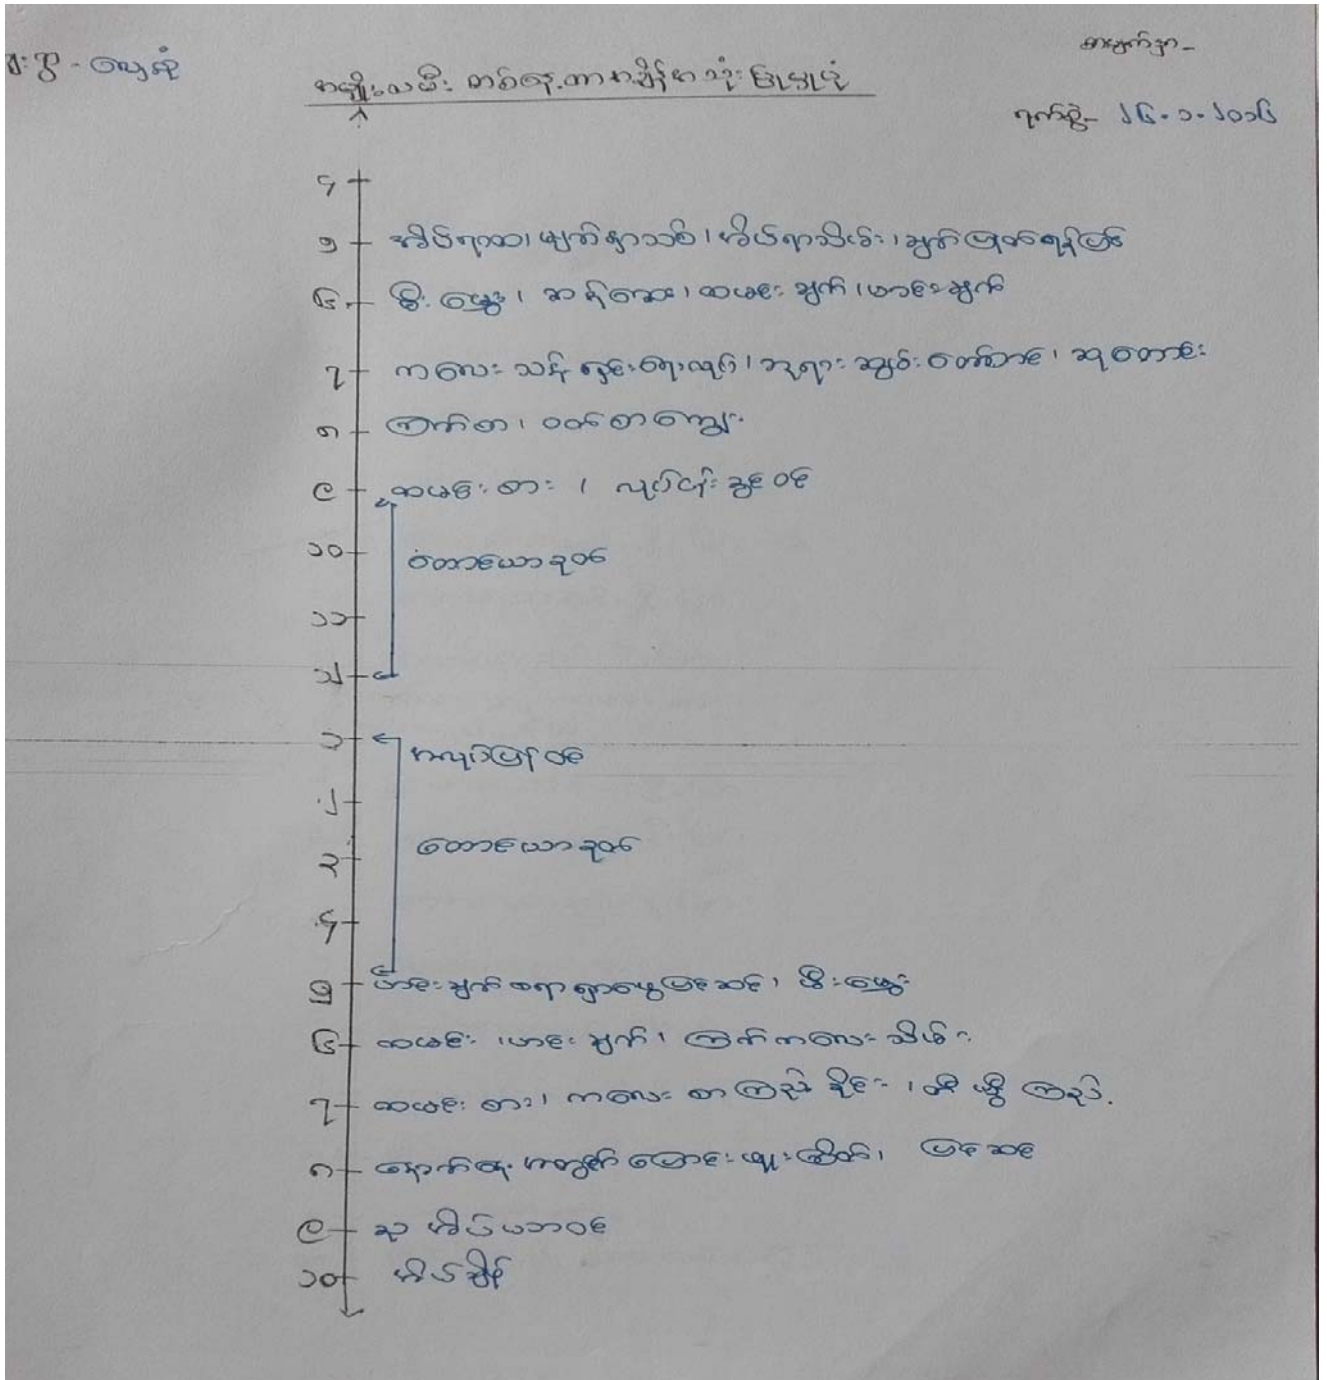 ရွာ - လေးအုံ
စာမျက်နှာ-
အမျိုးသမီး တစ်နေ့တာ အချိန်အသုံးပြုမှုပုံ
ရက်စွဲ- ၂၆.၁.၂၀၁၆
၄
၅ အိပ်ရာထ၊ မျက်နှာသစ်၊ အိပ်ရာသိမ်း၊ ချက်ပြုတ်ရန်ပြင်
၆ မီးမွှေး၊ ဆန်ဆေး၊ ထမင်းချက်၊ ဟင်းချက်
၇ ကလေး သန့်ရှင်းရေးလုပ်၊ ဘုရား ဆွမ်းတော်တင်၊ ဆုတောင်း
၈ ကြက်စာ၊ ဝက်စာကျွေး
၉ ထမင်းစား၊ လုပ်ငန်းခွင်ဝင်
၁၀ တောင်ယာခုတ်
၁၁
၁၂
၁ အလုပ်ပြန်ဝင်
၂
၃ တောင်ယာခုတ်
၄
၅ ဟင်းချက်စရာရှာဖွေပြင်ဆင်၊ မီးမွှေး
၆ ထမင်း၊ ဟင်းချက်၊ ကြက်ကလေးသိမ်း
၇ ထမင်းစား၊ ကလေး စာကြည့်ခိုင်း၊ တီဗွီကြည့်
၈ နောက်နေ့အတွက် ပြောင်းဖူးကြိတ်၊ ပြင်ဆင်
၉ အိပ်ယာဝင်
၁၀ အိပ်ချိန်